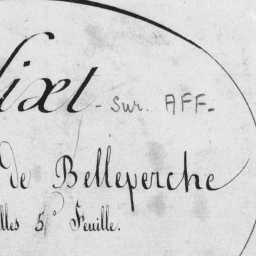 ixt - sur. AFF-
de Belleperche
lles 5e Feuille.